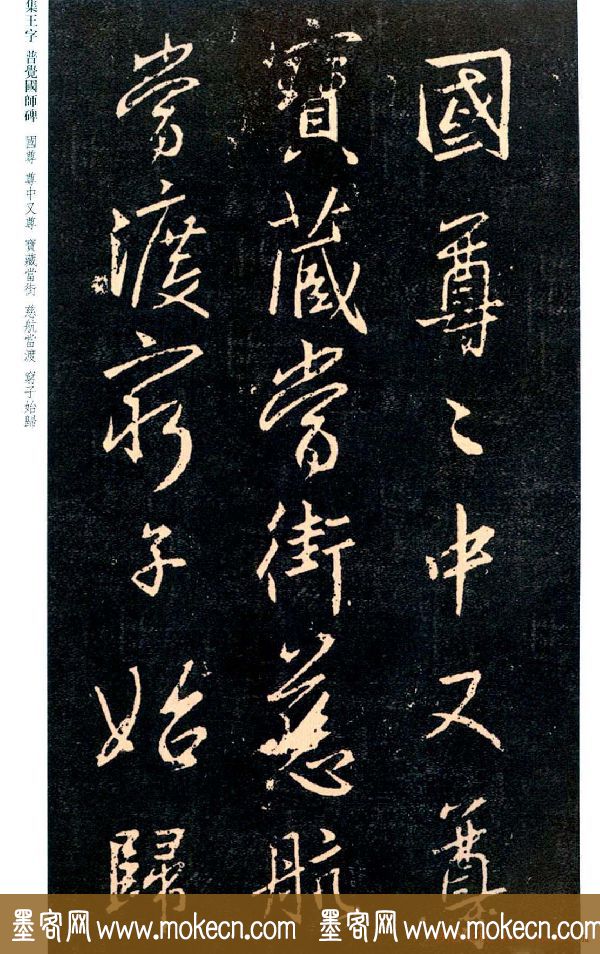 國尊〻中又尊
寶藏當街慈航
當渡窮子始歸
集王字 普覺國師碑 國尊 尊中又尊 寶藏當街 慈航當渡 窮子始歸
墨客网 www.mokecn.com 墨客网 www.mokecn.com